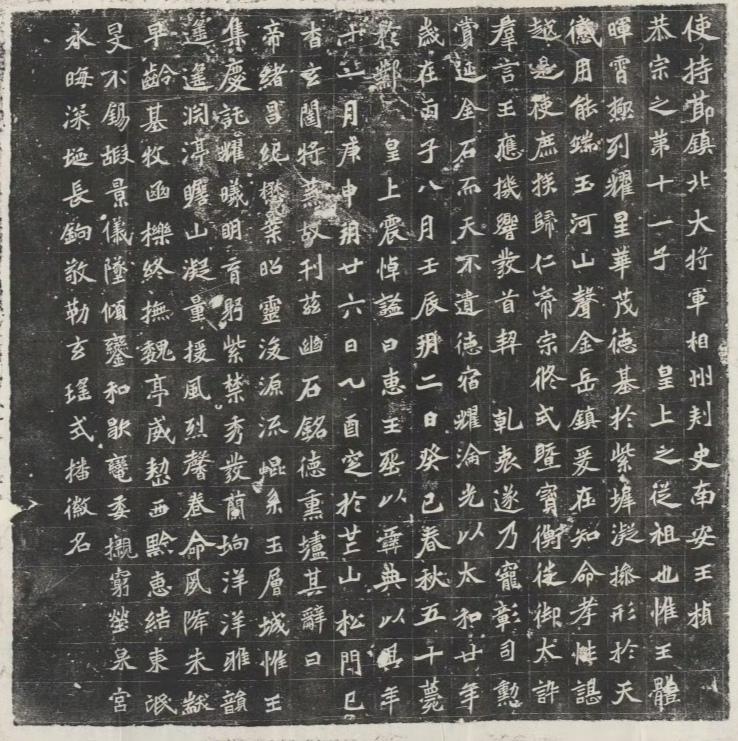 使持節鎮北大將軍相州刺史南安王楨
恭宗之第十一子　皇上之從祖也惟王體
暉霄極列耀星華茂德基於紫墀凝操形於天
儀用能端玉河山聲金岳鎮爰在知命孝性諶
越是使庶族歸仁帝宗攸式暨寶衡徙御太訊
羣言王應機響發首契　乾衷遂乃寵彰司勳
賞延金石而天不遺德宿耀淪光以太和廿年
歲在丙子八月壬辰朔二日癸巳春秋五十薨
於鄴　皇上震悼謚曰惠王葬以彝典以其年
十一月庚申朔廿六日乙酉窆於芒山松門已
杳玄闥將蕪故刊茲幽石銘德熏壚其辭曰
帝緒昌紀懋業昭靈浚源流崐系玉層城惟王
集慶託耀曦明育躬紫禁秀發蘭坰洋洋雅韻
遙遙淵渟瞻山凝量援風烈馨卷命夙降朱黻
早齡基牧函櫟終撫魏亭威整西黔惠結東氓
旻不錫嘏景儀墜傾鑾和歇轡委櫬窮塋泉宮
永晦深埏長鋦敬勒玄瑤式播徽名